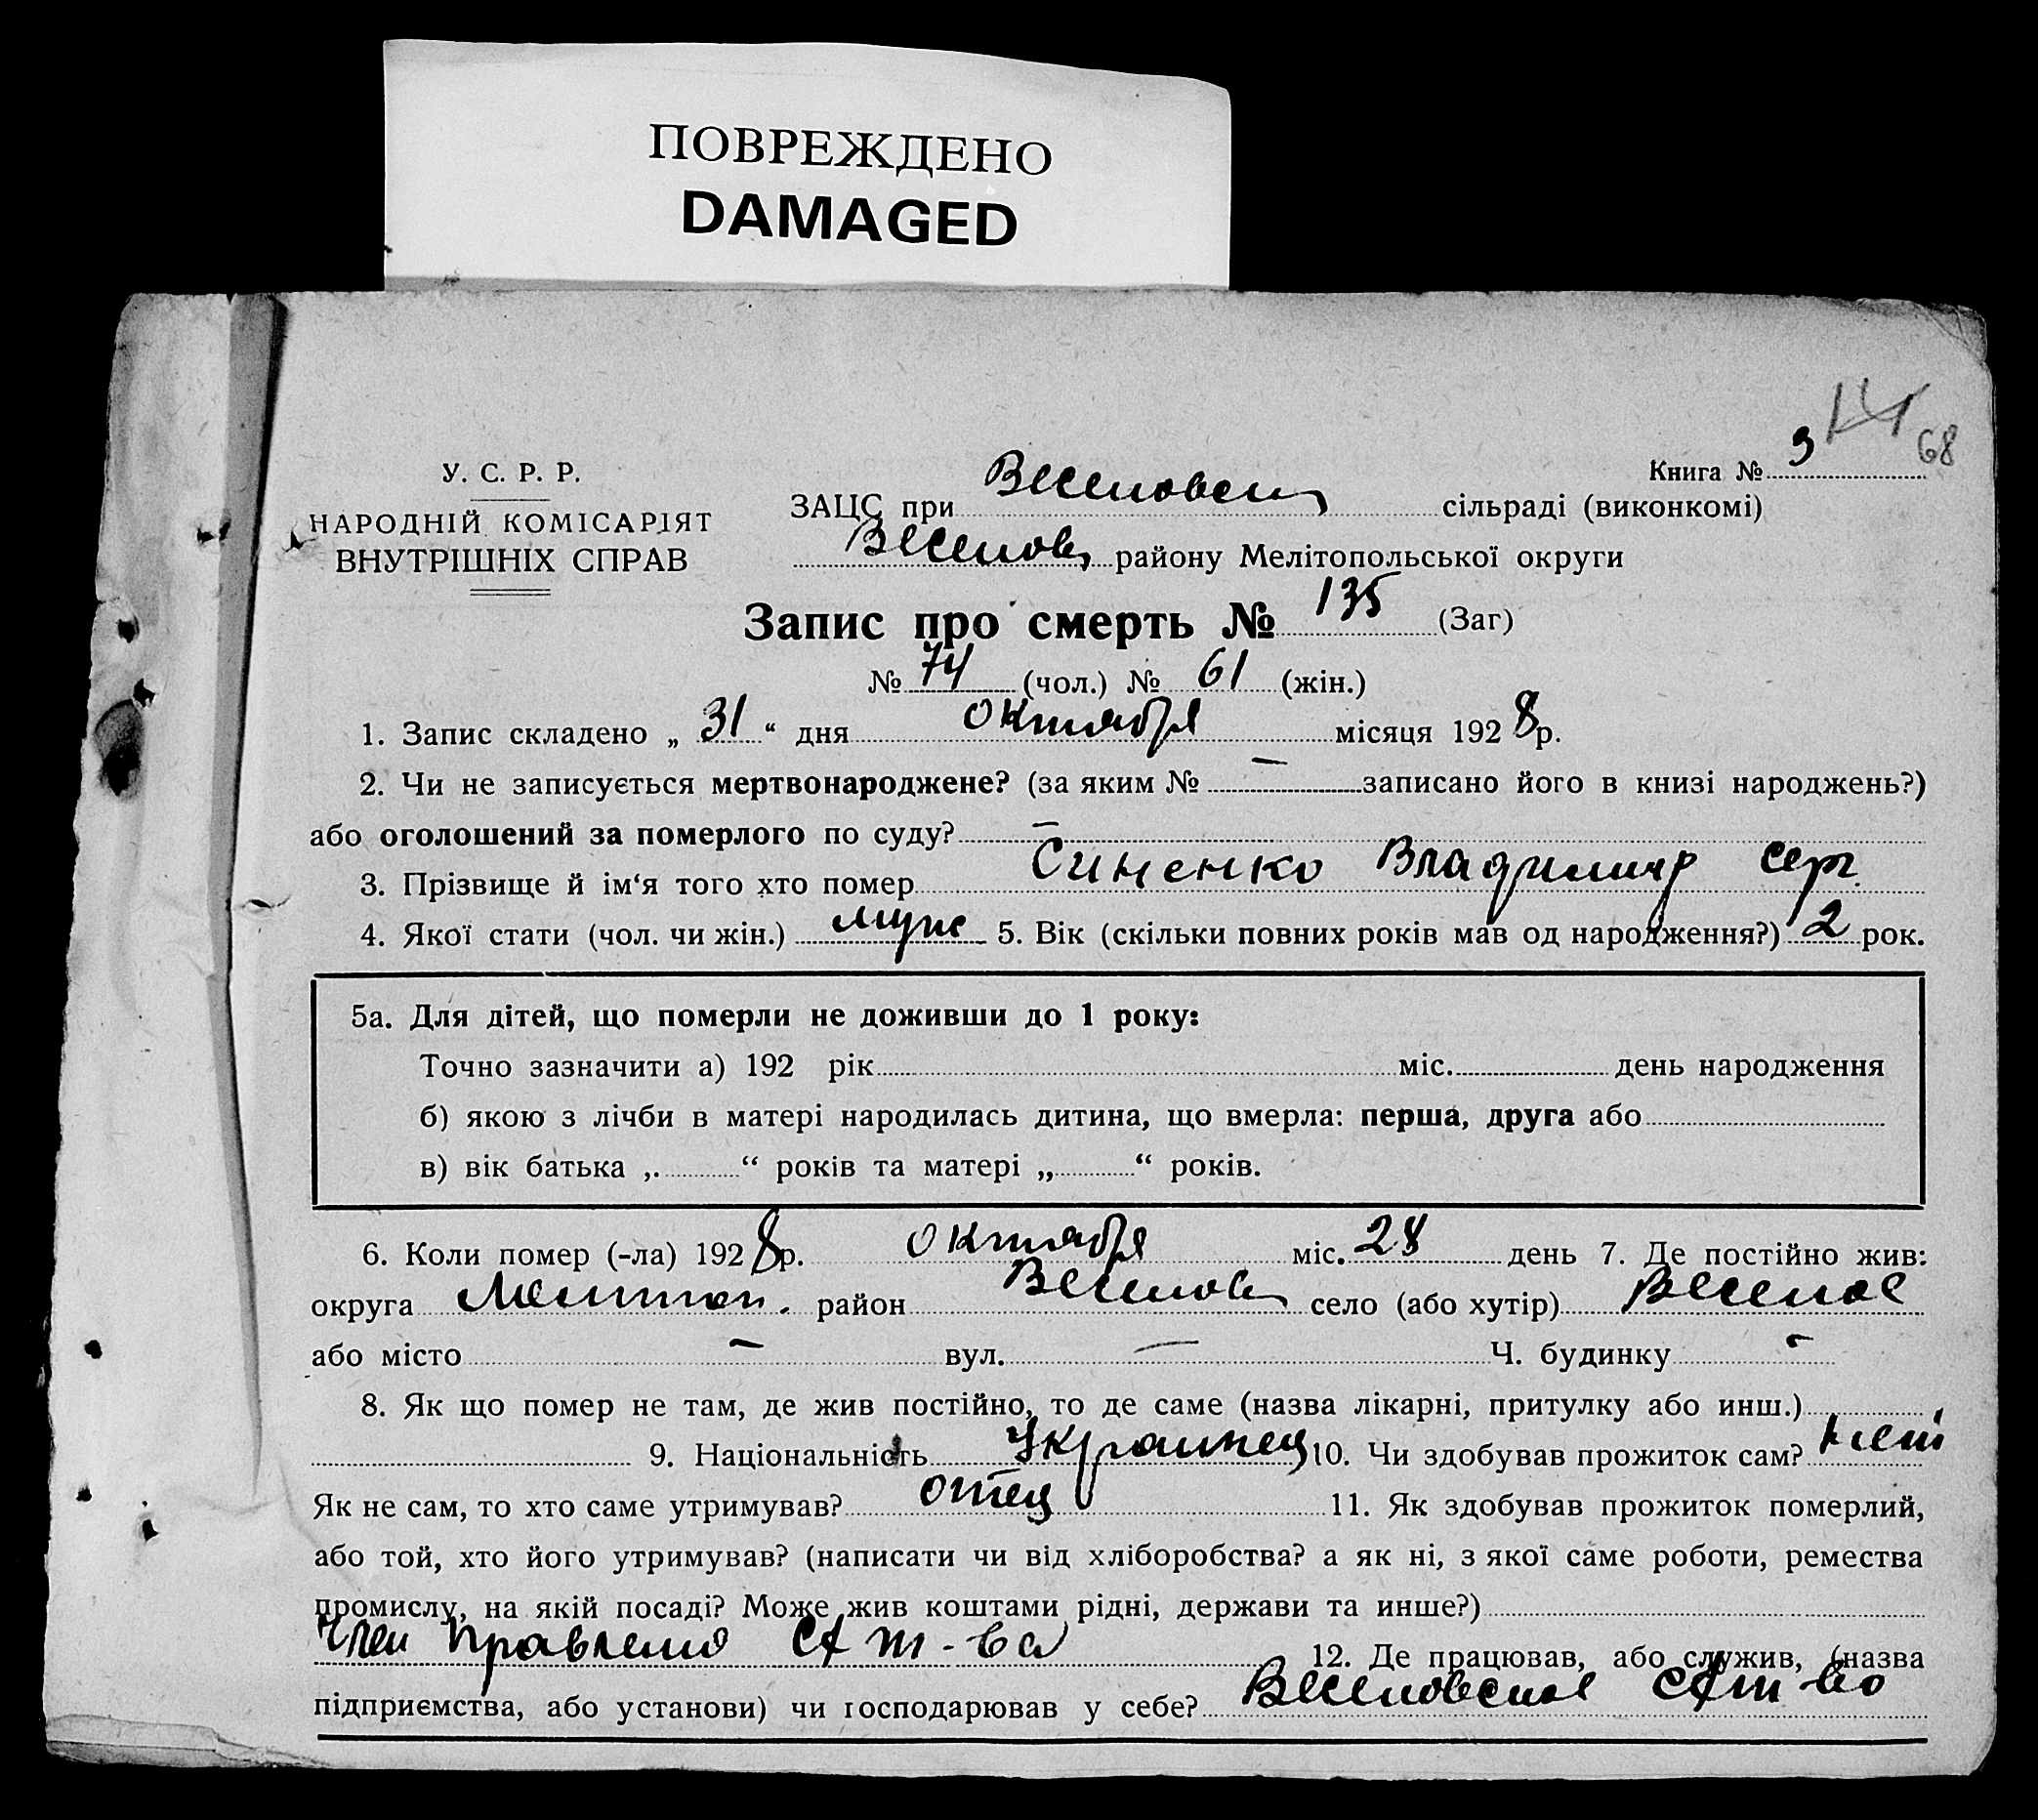 ПОВРЕЖДЕНО
DAMAGED
14 68
Книга № 3
У. С. Р. Р.
НАРОДНІЙ КОМІСАРІЯТ
ВНУТРІШНІХ СПРАВ
ЗАЦС при Веселовск сільраді (виконкомі)
Веселов району Мелітопольської округи
Запис про смерть № 135 (Заг)
№ 74 (чол.) № 61 (жін.)
1. Запис складено „ 31 “ дня октября місяця 1928 р.
2. Чи не записується мертвонароджене? (за яким № — записано його в книзі народжень?)
або оголошений за померлого по суду? —
3. Прізвище й ім‘я того хто помер Синенко Владимир Серг.
4. Якої стати (чол. чи жін.) муж 5. Вік (скільки повних років мав од народження?) 2 рок.
5а. Для дітей, що померли не доживши до 1 року:
Точно зазначити а) 192 рік міс. день народження
б) якою з лічби в матері народилась дитина, що вмерла: перша, друга або
в) вік батька „ “ років та матері „ “ років.
6. Коли помер (-ла) 1928 р. октября міс. 28 день 7. Де постійно жив:
округа Мелитоп. район Веселов село (або хутір) Веселое
або місто — вул. — Ч. будинку -
8. Як що помер не там, де жив постійно, то де саме (назва лікарні, притулку або инш.)
9. Національність Украинец 10. Чи здобував прожиток сам? нет
Як не сам, то хто саме утримував? отец 11. Як здобував прожиток померлий,
або той, хто його утримував? (написати чи від хліборобства? а як ні, з якої саме роботи, ремества
промислу, на якій посаді? Може жив коштами рідні, держави та инше?)
Член Правления т-ва 12. Де працював, або служив, (назва
підприємства, або установи) чи господарював у себе? Веселовское